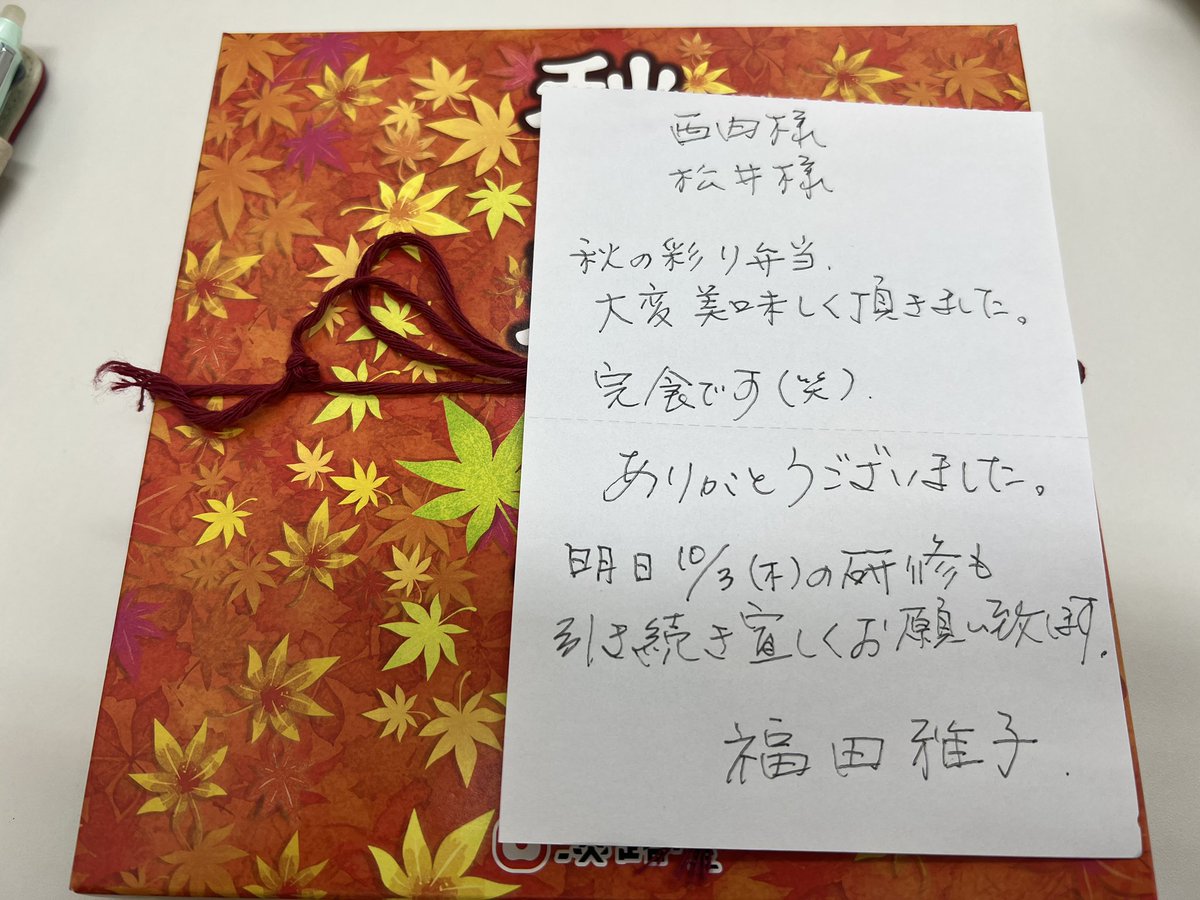 秋
西田様
松井様
秋の彩り弁当.
大変美味しく頂きました。
完食です(笑).
ありがとうございました。
明日10/3(木)の研修も
引き続き宜しくお願い致します.
福田雅子.